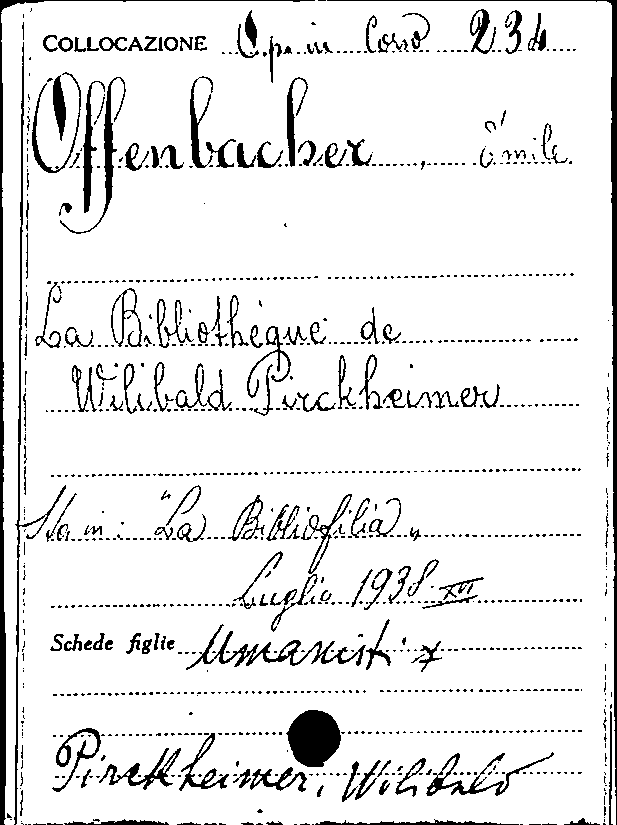 COLLOCAZIONE Op. in Corso 234
Offenbacher, Émile
La Bibliothéque de
Wilibald Pirckheimer
Sta in: "La Bibliofilia„
Luglio 1938 XVI
Schede figlie Umanisti x
Pirckheimer, Wilibald